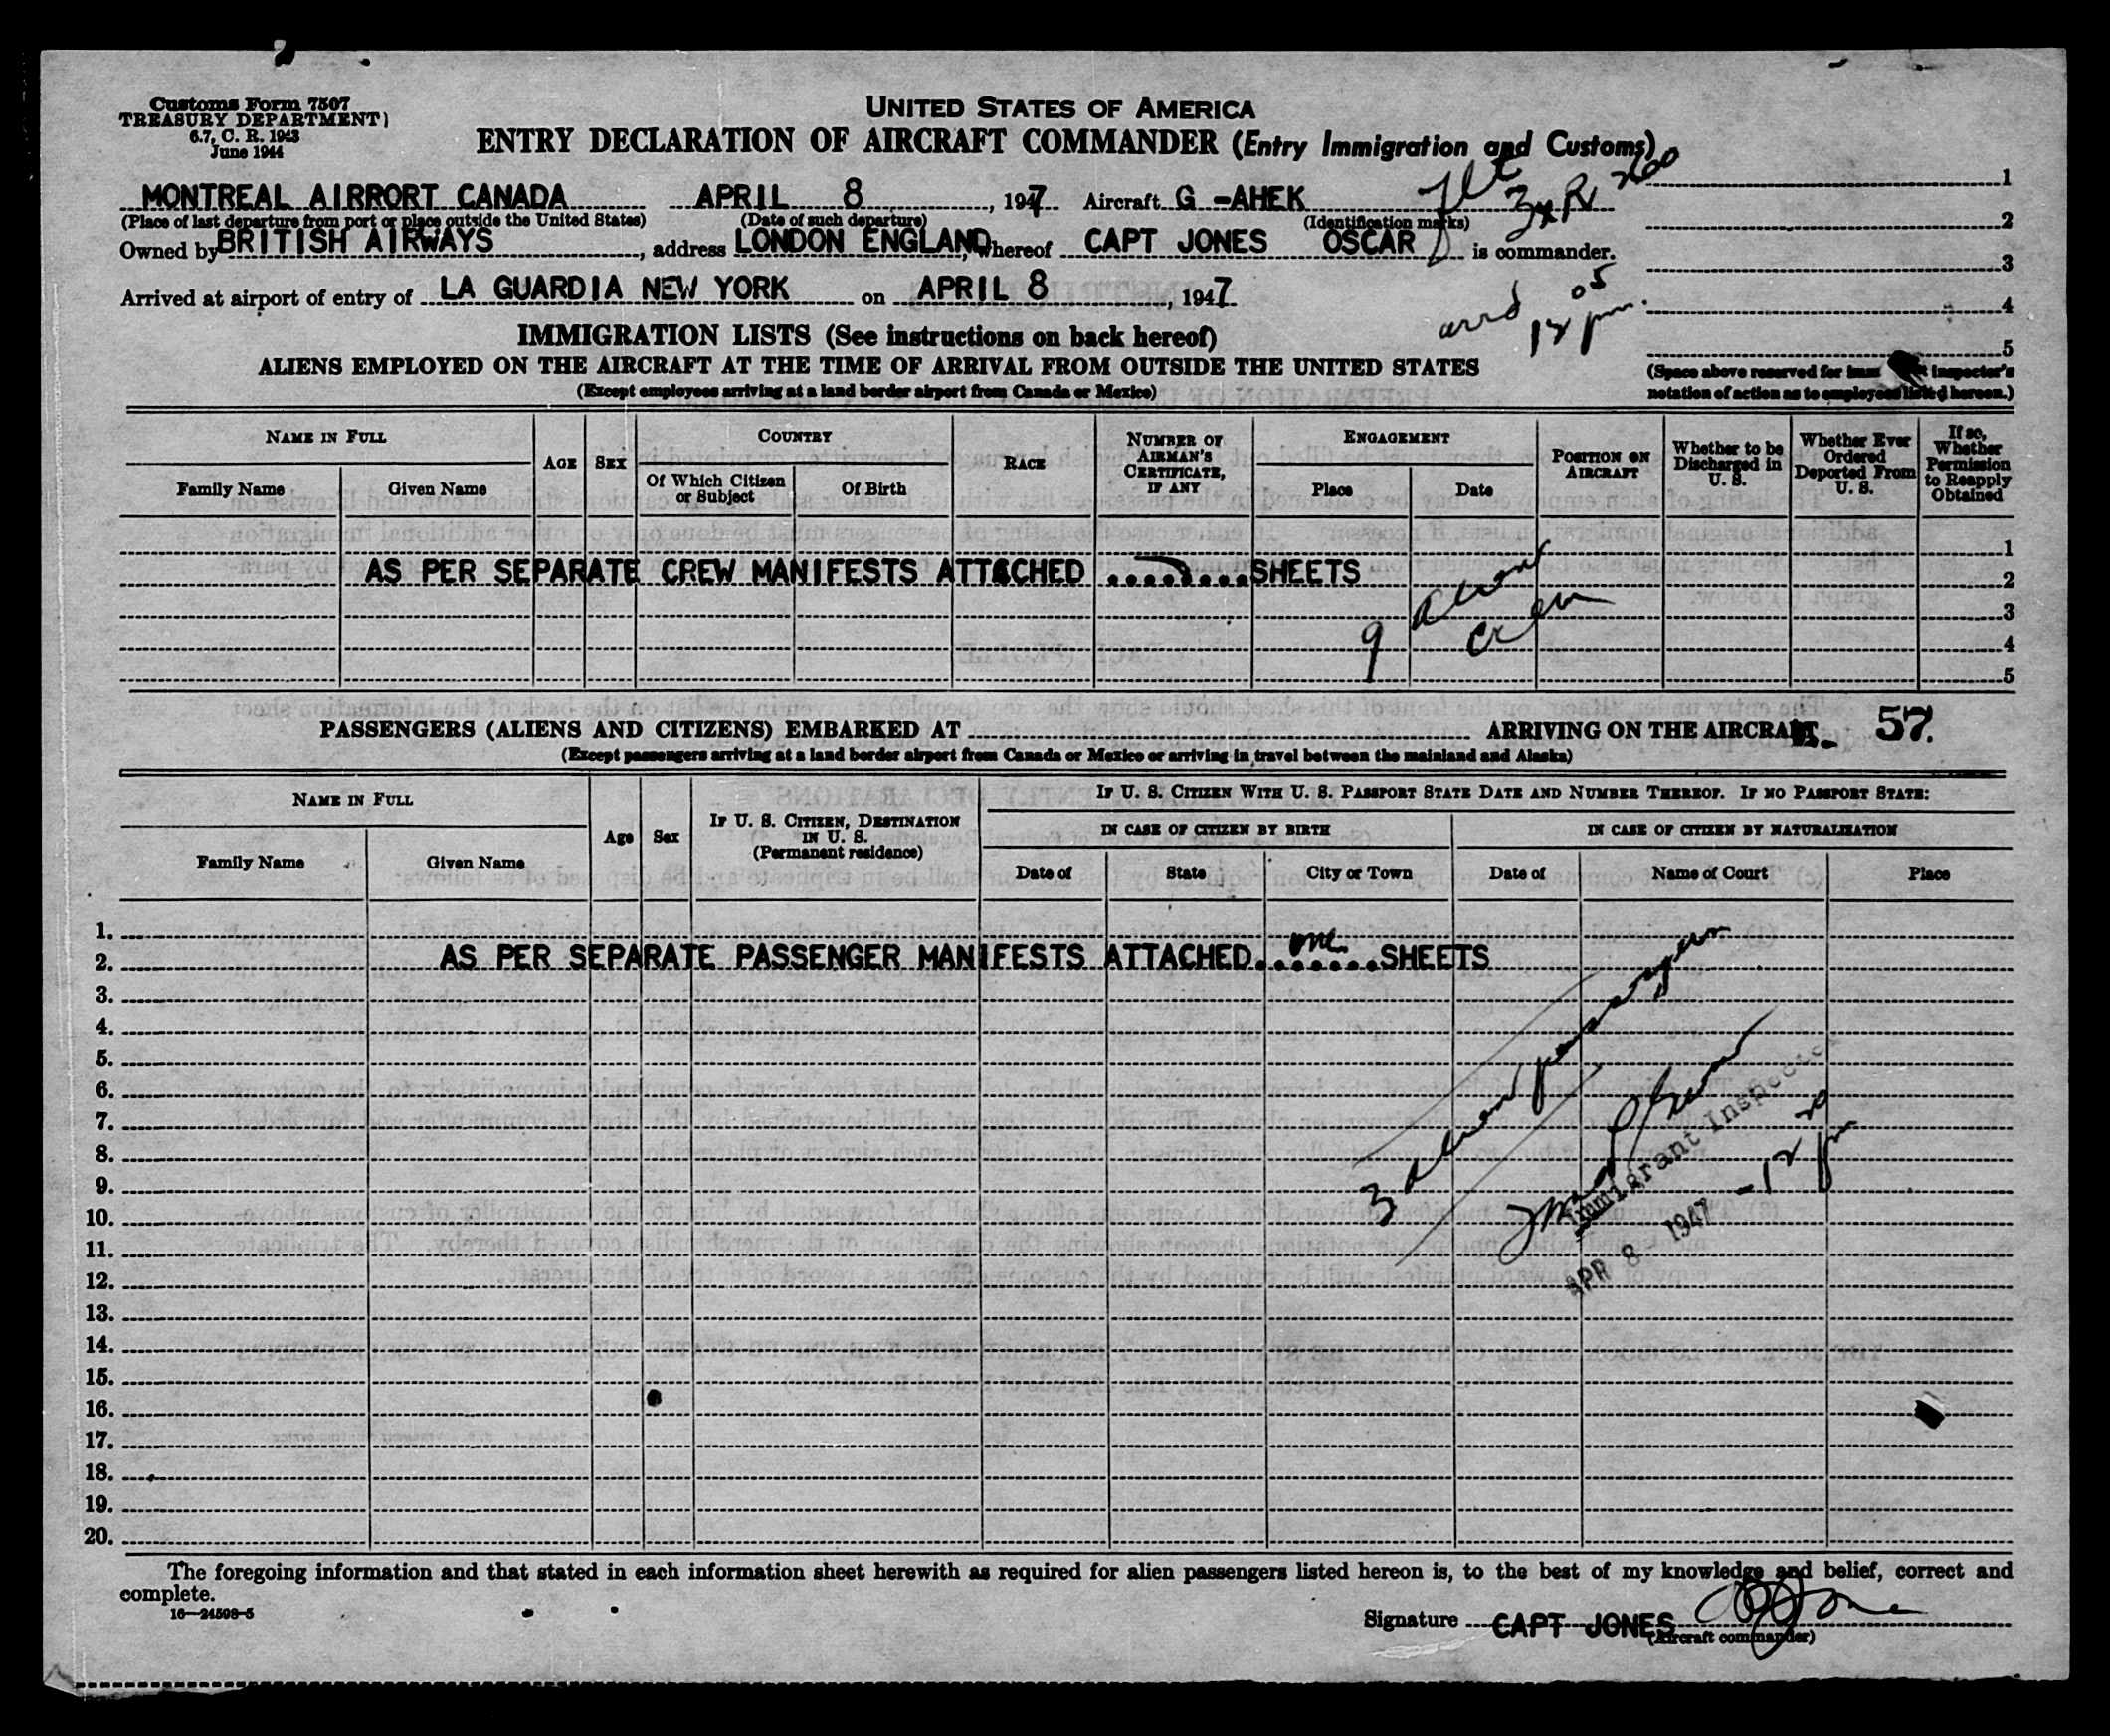 Customs Form 7507
TREASURY DEPARTMENT)
6.7, C. R. 1943
June 1944
UNITED STATES OF AMERICA
ENTRY DECLARATION OF AIRCRAFT COMMANDER (Entry Immigration and Customs)
MONTREAL AIRRORT CANADA APRIL 8, 1947 Aircraft G -AHEK
(Place of last departure from port or place outside the United States) (Date of such departure) (Identification marks)
Owned by BRITISH AIRWAYS, address LONDON ENGLAND, whereof CAPT JONES OSCAR is commander.
Arrived at airport of entry of LA GUARDIA NEW YORK on APRIL 8, 1947
arrd 12 05 pm.
1
2
3
4
5
IMMIGRATION LISTS (See instructions on back hereof)
ALIENS EMPLOYED ON THE AIRCRAFT AT THE TIME OF ARRIVAL FROM OUTSIDE THE UNITED STATES
(Except employees arriving at a land border airport from Canada or Mexico)
(Space above reserved for inspector's
notation of action as to employees listed hereon.)
NAME IN FULL
Family Name
Given Name
AGE
SEX
COUNTRY
Of Which Citizen
or Subject
Of Birth
RACE
NUMBER OF
AIRMAN'S
CERTIFICATE,
IF ANY
ENGAGEMENT
Place
Date
POSITION ON
AIRCRAFT
Whether to be
Discharged in
U. S.
Whether Ever
Ordered
Deported From
U. S.
If so,
Whether
Permission
to Reapply
Obtained
1
AS PER SEPARATE CREW MANIFESTS ATTACHED ........SHEETS
2
3
4
5
9 alien crew
PASSENGERS (ALIENS AND CITIZENS) EMBARKED AT ARRIVING ON THE AIRCRAFT. 57.
(Except passengers arriving at a land border airport from Canada or Mexico or arriving in travel between the mainland and Alaska)
NAME IN FULL
Family Name
Given Name
Age
Sex
IF U. S. CITIZEN, DESTINATION
IN U. S.
(Permanent residence)
IF U. S. CITIZEN WITH U. S. PASSPORT STATE DATE AND NUMBER THEREOF. IF NO PASSPORT STATE:
IN CASE OF CITIZEN BY BIRTH
IN CASE OF CITIZEN BY NATURALIZATION
Date of
State
City or Town
Date of
Name of Court
Place
1.
2. AS PER SEPARATE PASSENGER MANIFESTS ATTACHED. one SHEETS
3.
4.
5.
6.
7.
8.
9.
10.
11.
12.
13.
14.
15.
16.
17.
18.
19.
20.
3 alien passengers
Immigrant Inspector
APR 8 - 1947 - 12 20 pm
The foregoing information and that stated in each information sheet herewith as required for alien passengers listed hereon is, to the best of my knowledge and belief, correct and
complete.
16—24598-5
Signature CAPT JONES
(Aircraft commander)